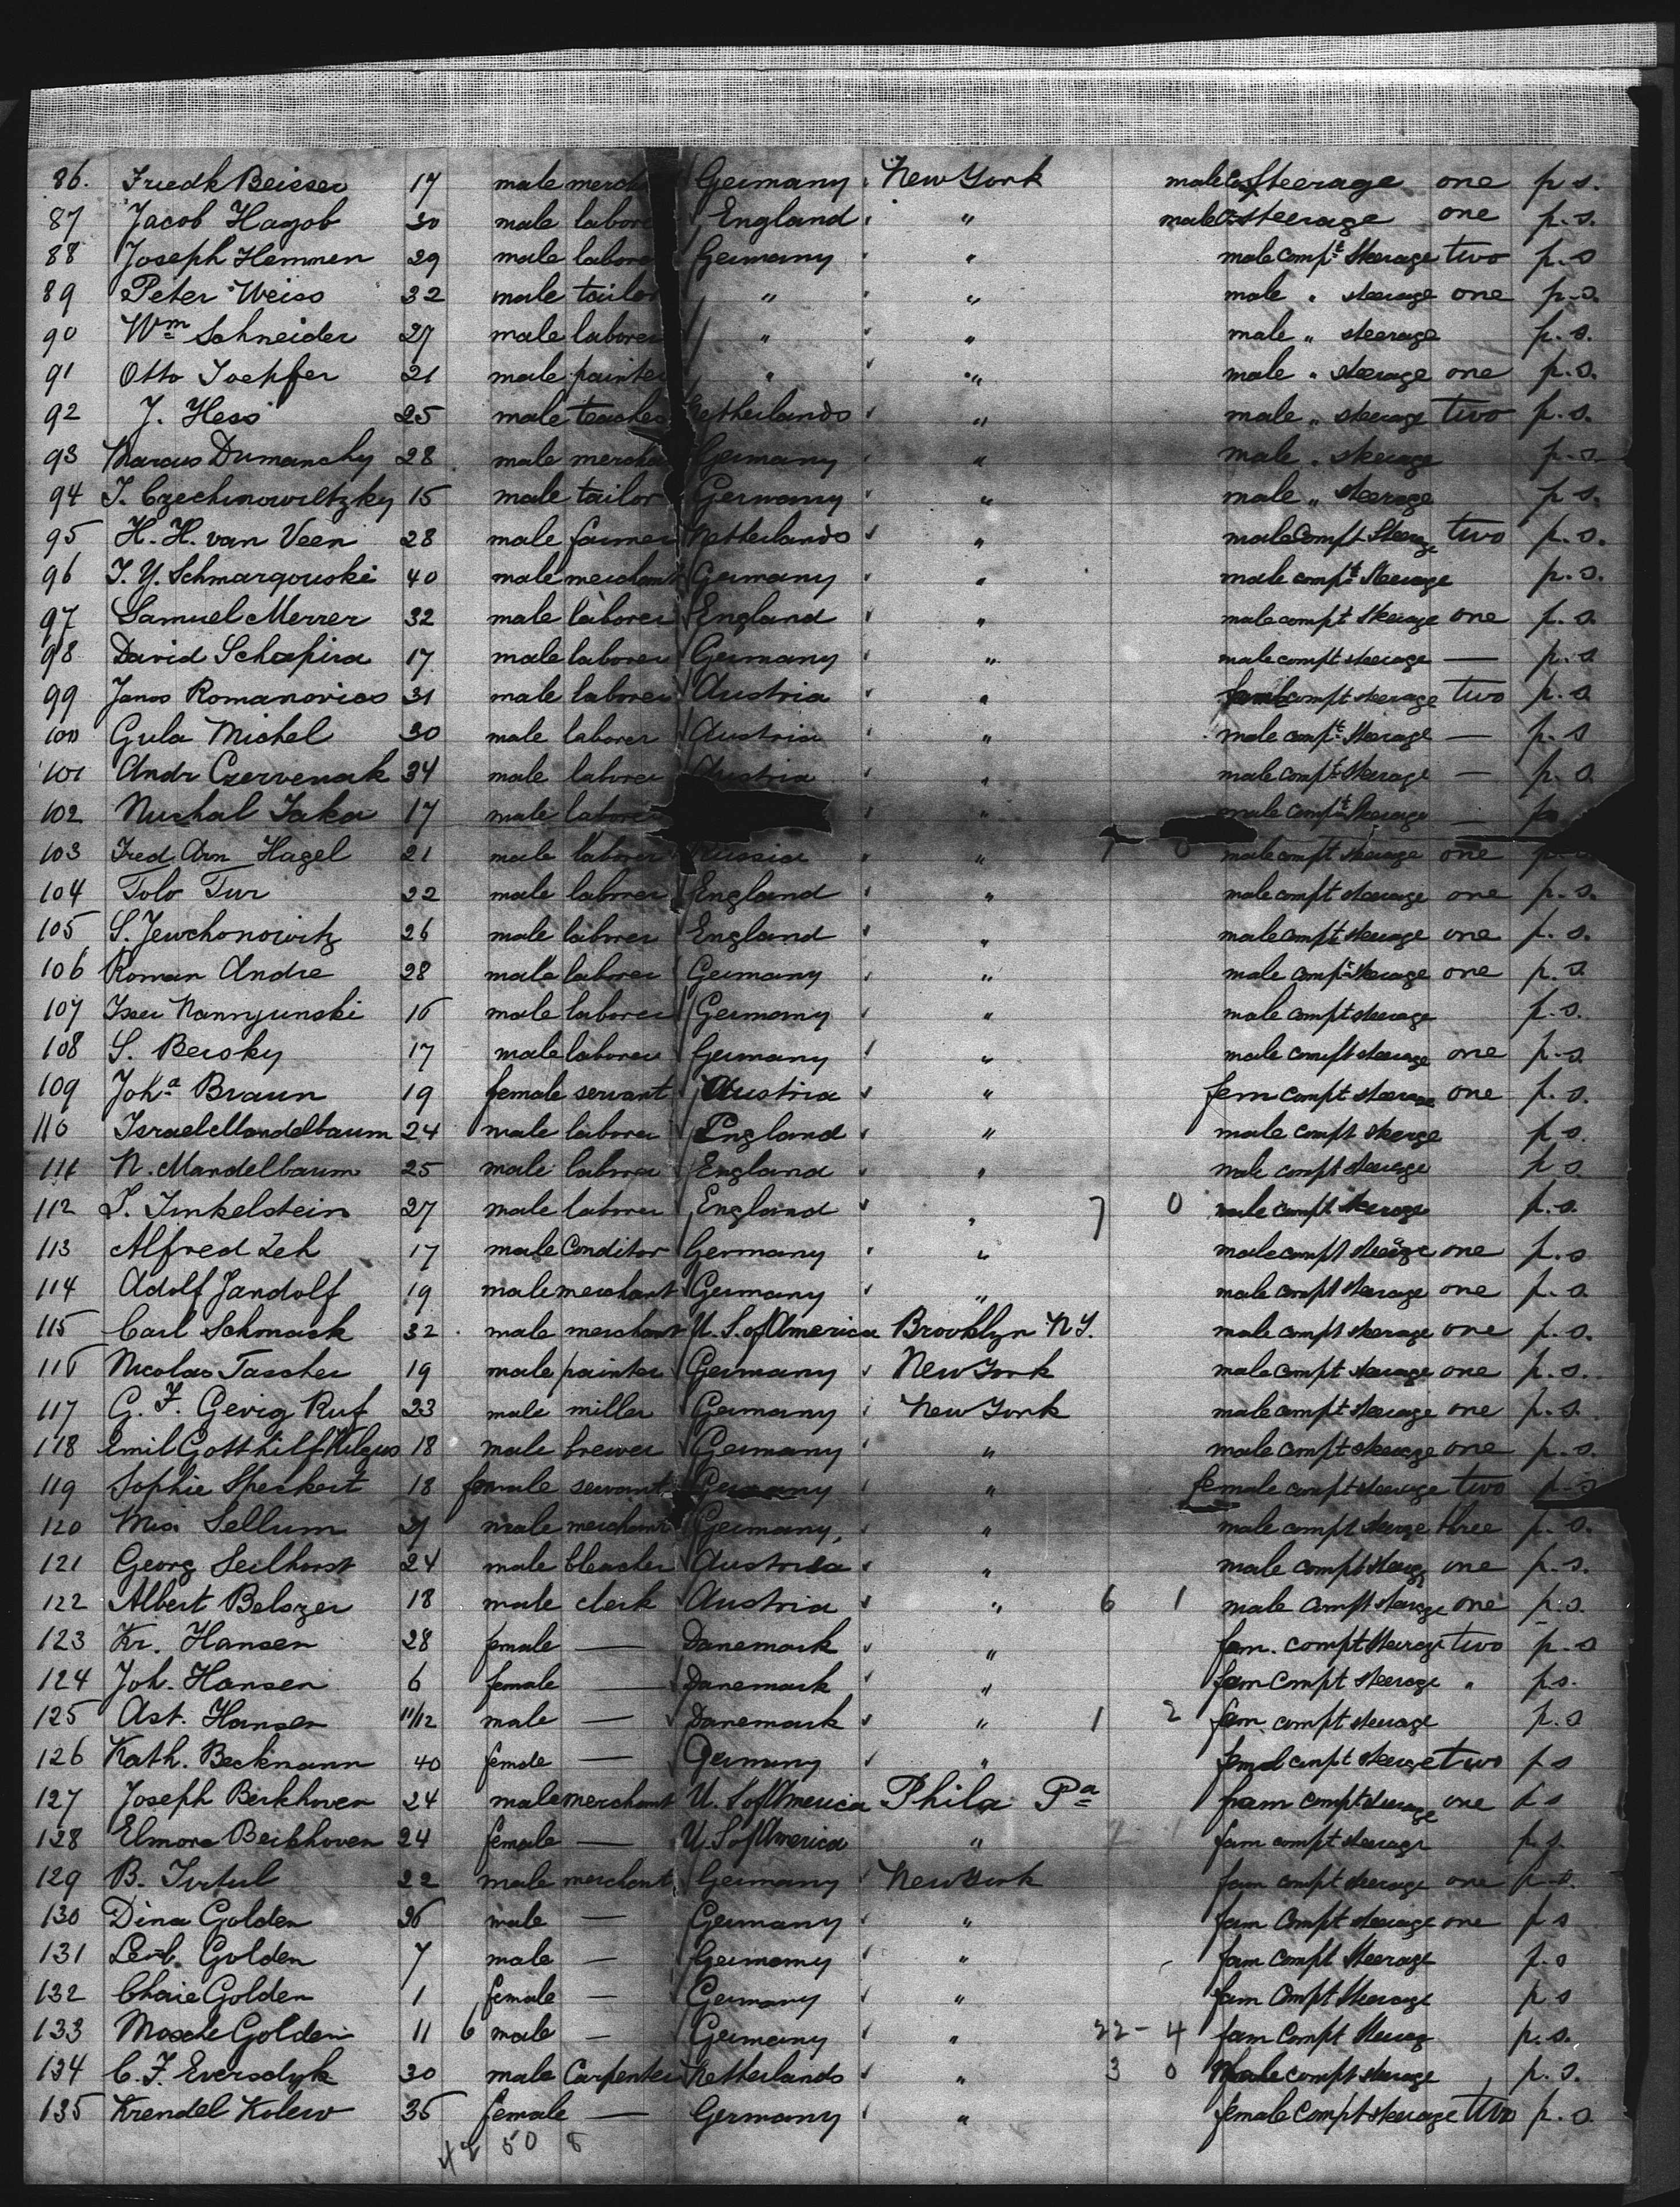 86. Friedk Beisser 17 male merch Germany New York male Costeerage one p s.
87 Jacob Hagob 30 male labore England " male steerage one p. s.
88 Joseph Hemmen 29 male labore Germany " male compt steerage two p. s
89 Peter Weiss 32 male tailor " " male " steerage one p. s.
90 Wm Schneider 27 male laborer " " male " steerage p. s.
91 Otto Toepfer 21 male painter " " male " steerage one p. s.
92 J. Hess 25 male teacher Netherlands " male " steerage two p. s.
93 Marcus Dumanchy 28 male mercha Germany " male " steerage p. s
94 J. Czechinowiltzky 15 male tailor Germany " male " steerage p s.
95 H. H. van Veen 28 male farmer Netherlands " male Compt Steerag two p. s.
96 J. Y. Schmargowski 40 male merchant Germany " male compt Steerage p. s.
97 Samuel Merrer 32 male laborer England " male compt steerage one p. s.
98 David Schapira 17 male laborer Germany " male compt steerage — p. s
99 Janos Romanovics 31 male laborer Austria " compt steerage two p. s.
100 Gula Michel 30 male laborer Austria " male compt Steerage — p. s
101 Andr Czervenak 34 male laborer Austria " male compt Steerage — p. s.
102 Nuchal Jaka 17 male laborer " male Compt Steerage —
103 Fred Arn Hagel 21 male laborer Russia " " 7 0 male compt steerage one
104 Tolo Tur 22 male laborer England " male compt steerage one p. s.
105 S. Jewchonowitz 26 male laborer England " male compt steerage one p. s.
106 Roman Andre 28 male laborer Germany " male compt steerage one p. s.
107 Isser Nannyunski 16 male laborer Germany " male compt steerage p. s.
108 S. Bersky 17 male laborer Germany " male compt steerage one p. s.
109 Joha Braun 19 female servant Austria " fem compt steerage one p. s.
110 Israel Mandelbaum 24 male laborer England " male compt steerge p s.
111 N. Mandelbaum 25 male laborer England " male compt steerage p s.
112 S. Finkelstein 27 male laborer England " 7 0 male compt steerage p. s.
113 Alfred Zeh 17 male Conditor Germany " male compt steerage one p. s
114 Adolf Jandolf 19 male merchant Germany " male compt steerage one p. s.
115 Carl Schmack 32 male merchant U. S. of America Brooklyn N Y. male compt steerage one p. s.
116 Nicolas Tascher 19 male painter Germany New York male compt steerage one p. s.
117 G. F. Gevig Ruf 23 male miller Germany New York male compt steerage one p. s.
118 Emil Gotthilf Kilgus 18 male brewer Germany " male compt steerage one p. s.
119 Sophie Speckert 18 female servant Germany " female compt steerage two p. s
120 Sellum male merchant Germany, " male compt steerge three p. s.
121 Georg Seilhorst 24 male bleacher Austria " male compt steerg one p. s.
122 Albert Belozer 18 male clerk Austria " 6 1 male compt steerage one p. s.
123 Kr. Hansen 28 female — Danemark " fam. compt steerage two p. s
124 Joh. Hansen 6 female — Danemark " fam Compt steerage " p. s.
125 Ast. Hansen 11/12 male — Danemark " 1 2 fam compt steerage p. s
126 Kath. Beckmann 40 female — Germany " femal compt steerge two p s
127 Joseph Berkhoven 24 male merchant U. S of America Phila Pa fam compt steerage one p s
128 Elmore Berkhoven 24 female — U. S of America " fam compt steerage p. s.
129 B. 22 male merchant Germany New York fam compt steerage one p. s.
130 Dina Golden 26 male — Germany " fam Compt steerage one p s
131 Leib. Golden 7 male — Germany " fam Compt Steerage p. s
132 Chaie Golden 1 female — Germany " fam Compt Steerage p s
133 Mosche Golden 11 6 male — Germany " 22 - 4 fam Compt Steerag p. s.
134 C. F. Eversdyk 30 male Carpenter Netherlands " 3 0 Male compt steerage p. s.
135 Krendel Kolew 35 female — Germany " female Compt steerage two p. s
50 8